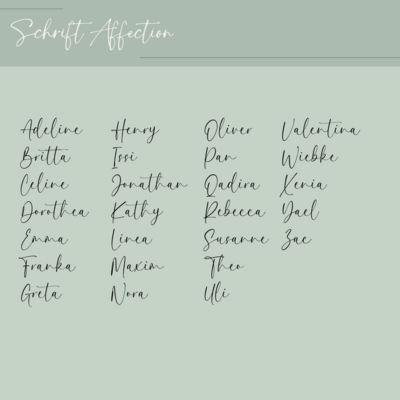 Schrift Affection
Adeline
Britta
Celine
Dorothea
Emma
Franka
Greta
Henry
Issi
Jonathan
Kathy
Linea
Maxim
Nora
Oliver
Pan
Qadira
Rebecca
Susanne
Theo
Uli
Valentina
Wiebke
Xenia
Yael
Zac